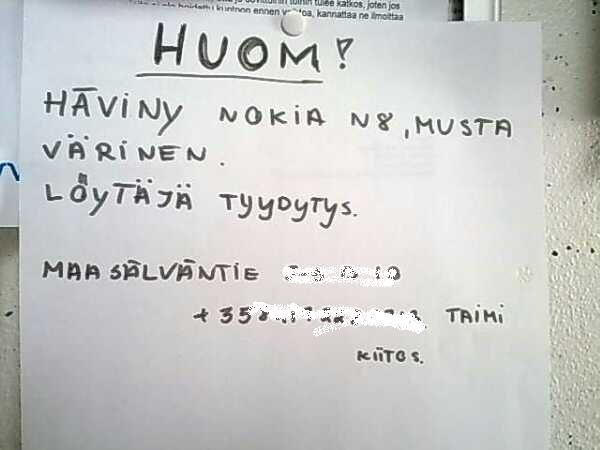 tulee katkos, joten jos
kuntoon ennen
kannattaa ne ilmoittaa
HUOM!
HÄVINY NOKIA N8, MUSTA
VÄRINEN.
LÖYTÄJÄ TYYDYTYS.
MAASÄLVÄNTIE
+358 TAIMI
KIITOS.